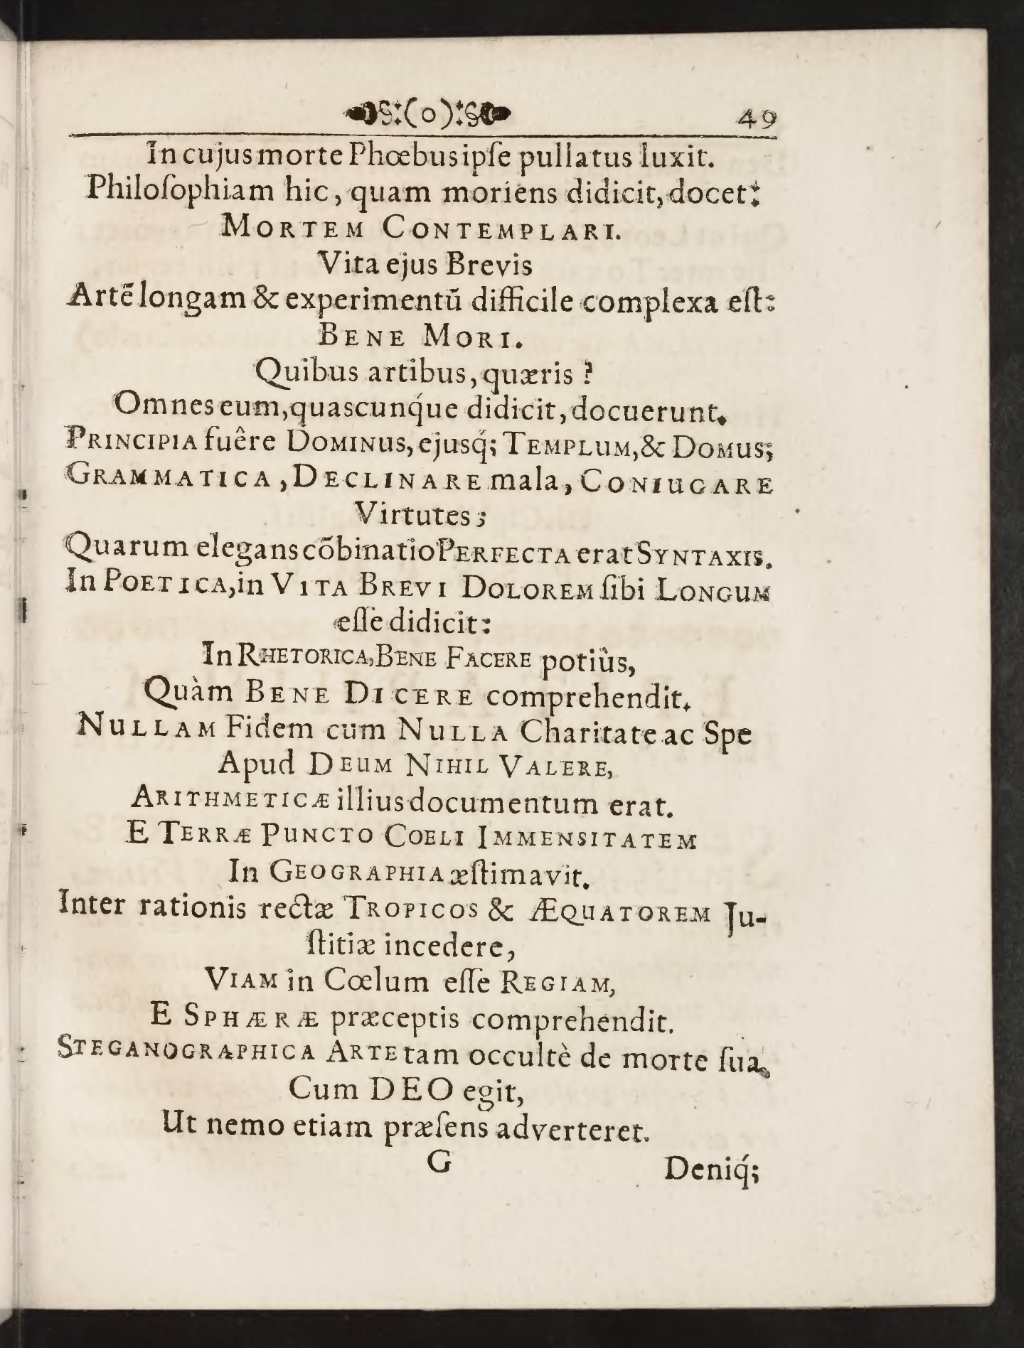 §:(o):§ 49
In cujus morte Phœbus ipſe pullatus luxit.
Philoſophiam hic, quam moriens didicit, docet:
MORTEM CONTEMPLARI.
Vita ejus Brevis
Artē longam & experimentū difficile complexa eſt:
BENE MORI.
Quibus artibus, quæris ?
Omnes eum, quascunq́ue didicit, docuerunt.
PRINCIPIA fuêre DOMINUS, ejusq́; TEMPLUM, & DOMUS;
GRAMMATICA, DECLINARE mala, CONIUGARE
Virtutes;
Quarum elegans cōbinatio PERFECTA erat SYNTAXIS.
In POETICA, in VITA BREVI DOLOREM ſibi LONGUM
eſſe didicit:
In RHETORICA, BENE FACERE potiùs,
Quàm BENE DICERE comprehendit.
NULLAM Fidem cum NULLA Charitate ac Spe
Apud DEUM NIHIL VALERE,
ARITHMETICÆ illius documentum erat.
E TERRÆ PUNCTO COELI IMMENSITATEM
In GEOGRAPHIA æſtimavit.
Inter rationis rectæ TROPICOS & ÆQUATOREM Ju-
ſtitiæ incedere,
VIAM in Cœlum eſſe REGIAM,
E SPHÆRÆ præceptis comprehendit.
STEGANOGRAPHICA ARTE tam occultè de morte ſua
Cum DEO egit,
Ut nemo etiam præſens adverteret.
G Deniq́;